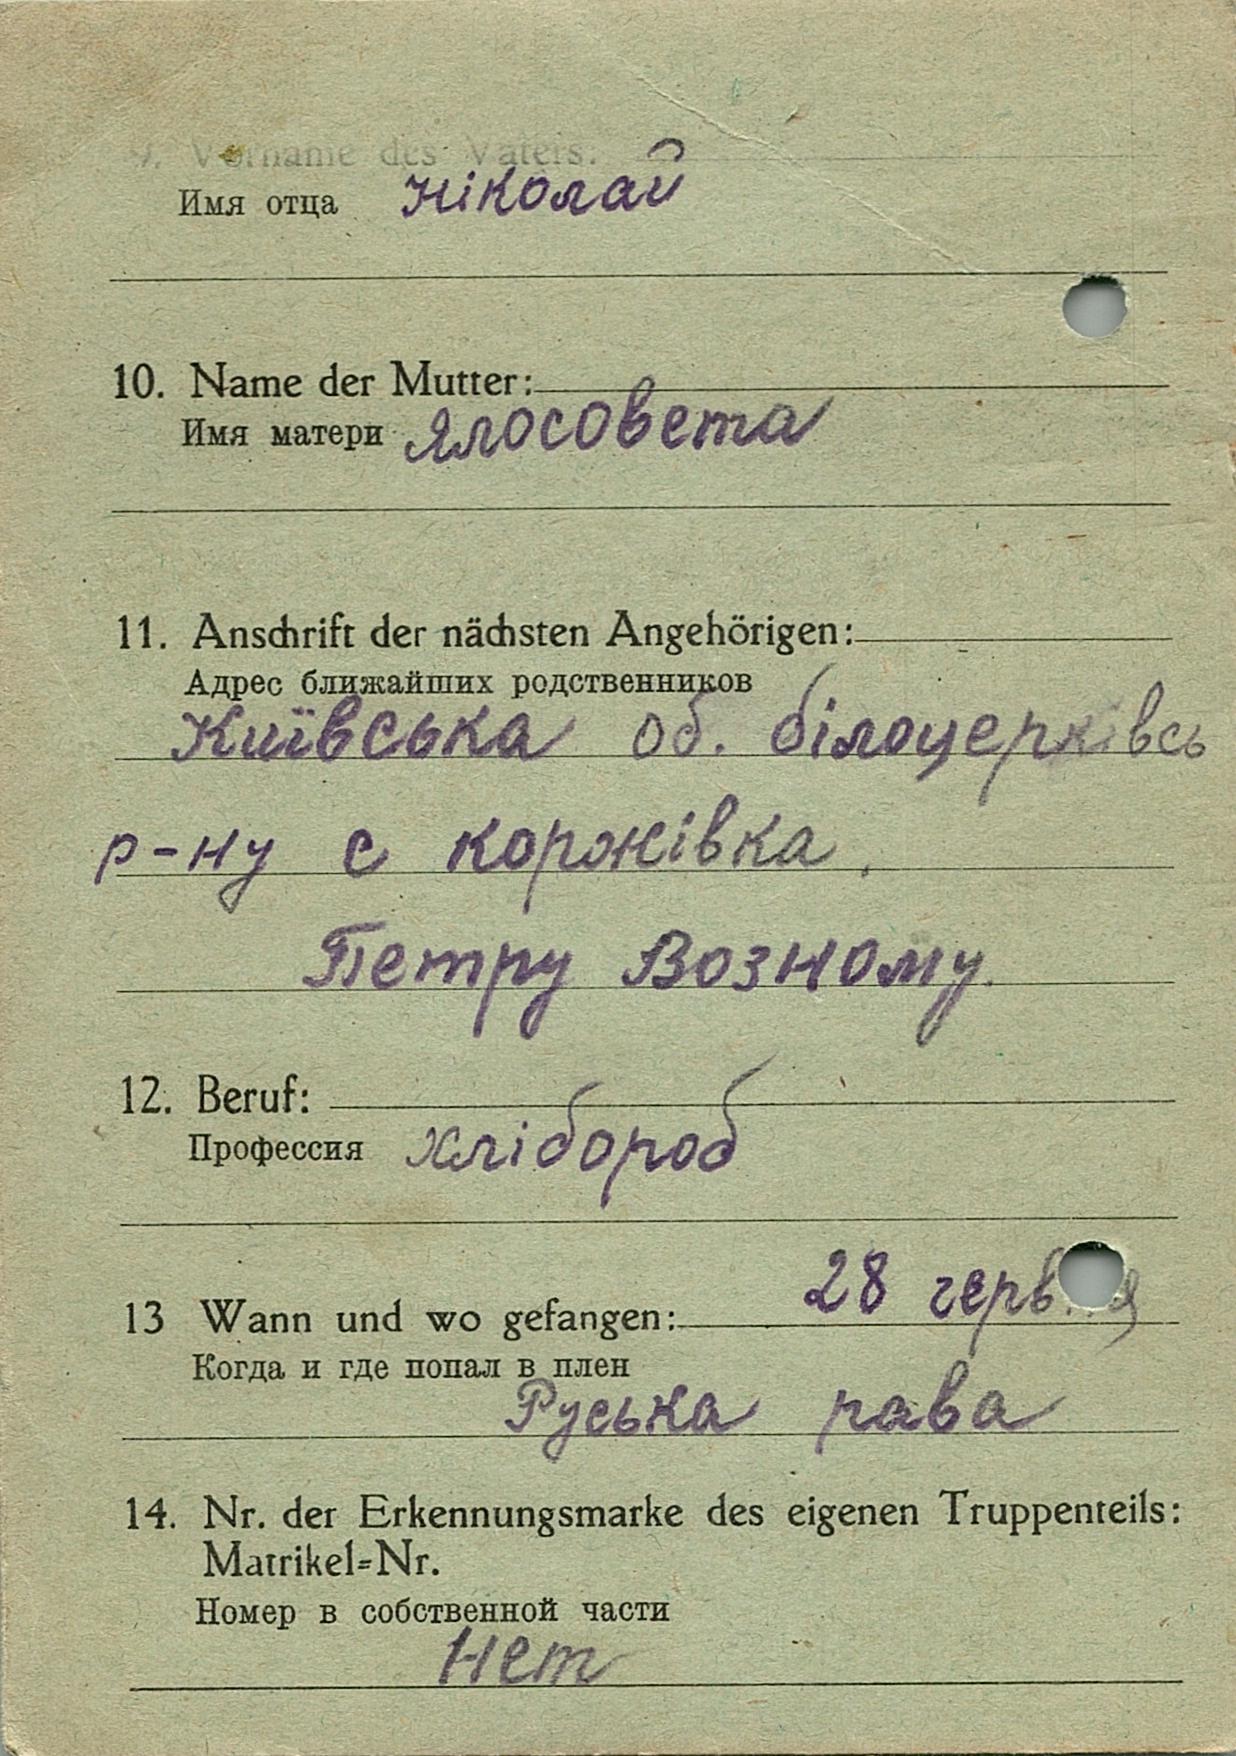 9. Vorname des Vaters:
Имя отца Ніколай
10. Name der Mutter:
Имя матери Ялосовета
11. Anschrift der nächsten Angehörigen:
Адрес ближайших родственников
Київська об. білоцерківсь
р-ну с коржівка,
Петру Возному.
12. Beruf:
Профессия хлібороб
13 Wann und wo gefangen: 28
Когда и где попал в плен
Руська рава
14. Nr. der Erkennungsmarke des eigenen Truppenteils:
Matrikel=Nr.
Номер в собственной части
Нет